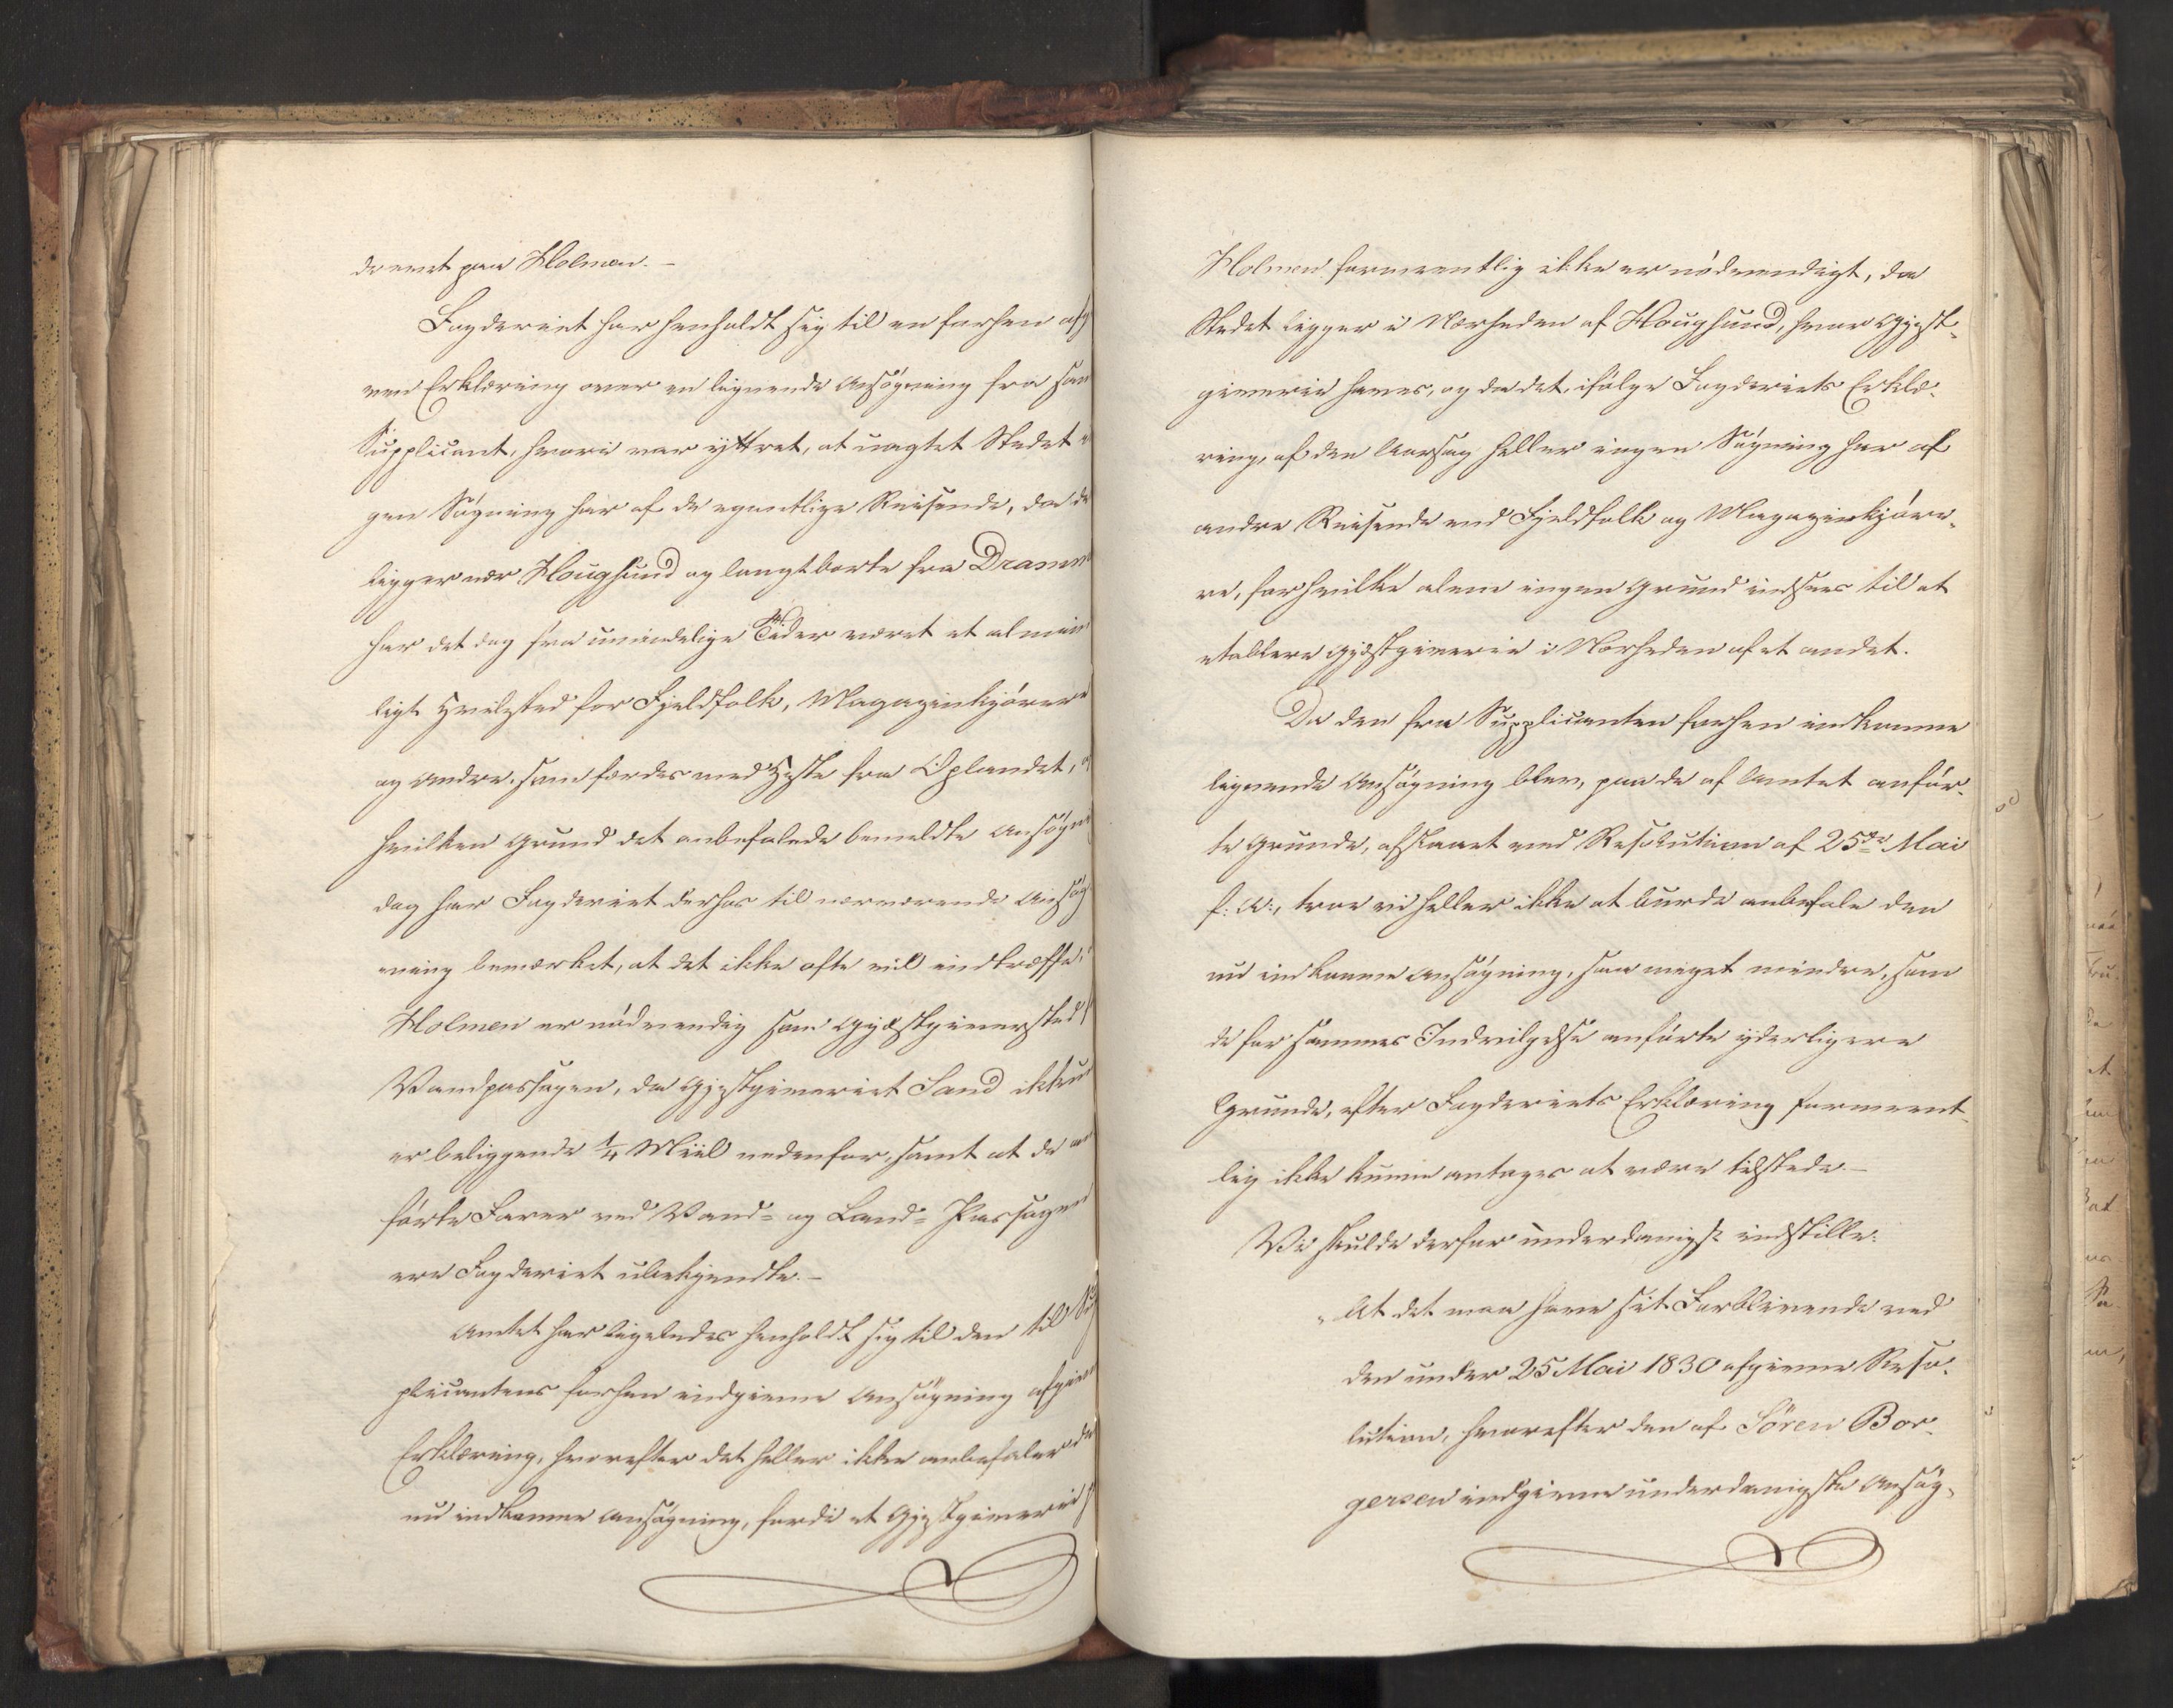 derniet paa Holmen. -
Fogderiet har henholdt sig til en forhen afg
ven Erklæring over en lignende Ansögning fra sam
Supplicant, hvori var yttret, at uagtet Stedet 
gen Sögning har af de egentlige Reisende, da de
ligger nær Hougsund og langt borte fra Dramm
har det dog fra umindelige Tider været et almin
ligt Hvilested for Fjeldfolk, Magazinkjörere
og Andre, som færdes med Heste fra Oplandet, 
hvilken Grund det anbefalede bemeldte Ansögn
dog har Fogderiet derhos til nærværende Ansög
ning bemærket, at det ikke ofte vil indtræffe, 
Holmen er nödvendig som Gjæstgiversted f
Vandpassagen, da Gjæstgiveriet Sand ikkun
er beliggende 1/4 Miil nedenfor, samt at de an
förte Farer ved Vand- og Land-Passagen
ere Fogderiet ubekjendte. -
Amtet har ligeledes henholdt sig til den til Su
plicantens forhen indgivne Ansögning afgivn
Erklæring, hvorefter det heller ikke anbefaler de
nu indkomne Ansögning, fordi et Gjæstgiverie 
Holmen formeentlig ikke er nödvendigt, da
Stedet ligger i Nærheden af Hougsund, hvor Gjæst-
giverie haves, og da det, ifölge Fogderiets Erklæ-
ring, af den Aarsag heller ingen Sögning har af
andre Reisende end Fjeldfolk og Magazinkjöre-
re, for hvilke alene ingen Grund indsees til at
etablere Gjæstgiverie i Nærheden af et andet.
Da den fra Supplicanten forhen indkomne
lignende Ansögning blev, paa de af Amtet anför-
te Grunde, afslaaet ved Resolution af 25de Mai
f: A:, troe vi heller ikke at burde anbefale den
nu indkomne Ansögning, saa meget mindre, som
de for sammes Indvilgelse anförte yderligere
Grunde, efter Fogderiets Erklæring formeent-
lig ikke kunne antages at være tilstede. -
Vi skulde derfor underdanigst indstille:
"At det maa have sit Forblivende ved
den under 25 Mai 1830 afgivne Reso-
lution, hvorefter den af Sören Bor-
gersen indgivne underdanigste Ansög-